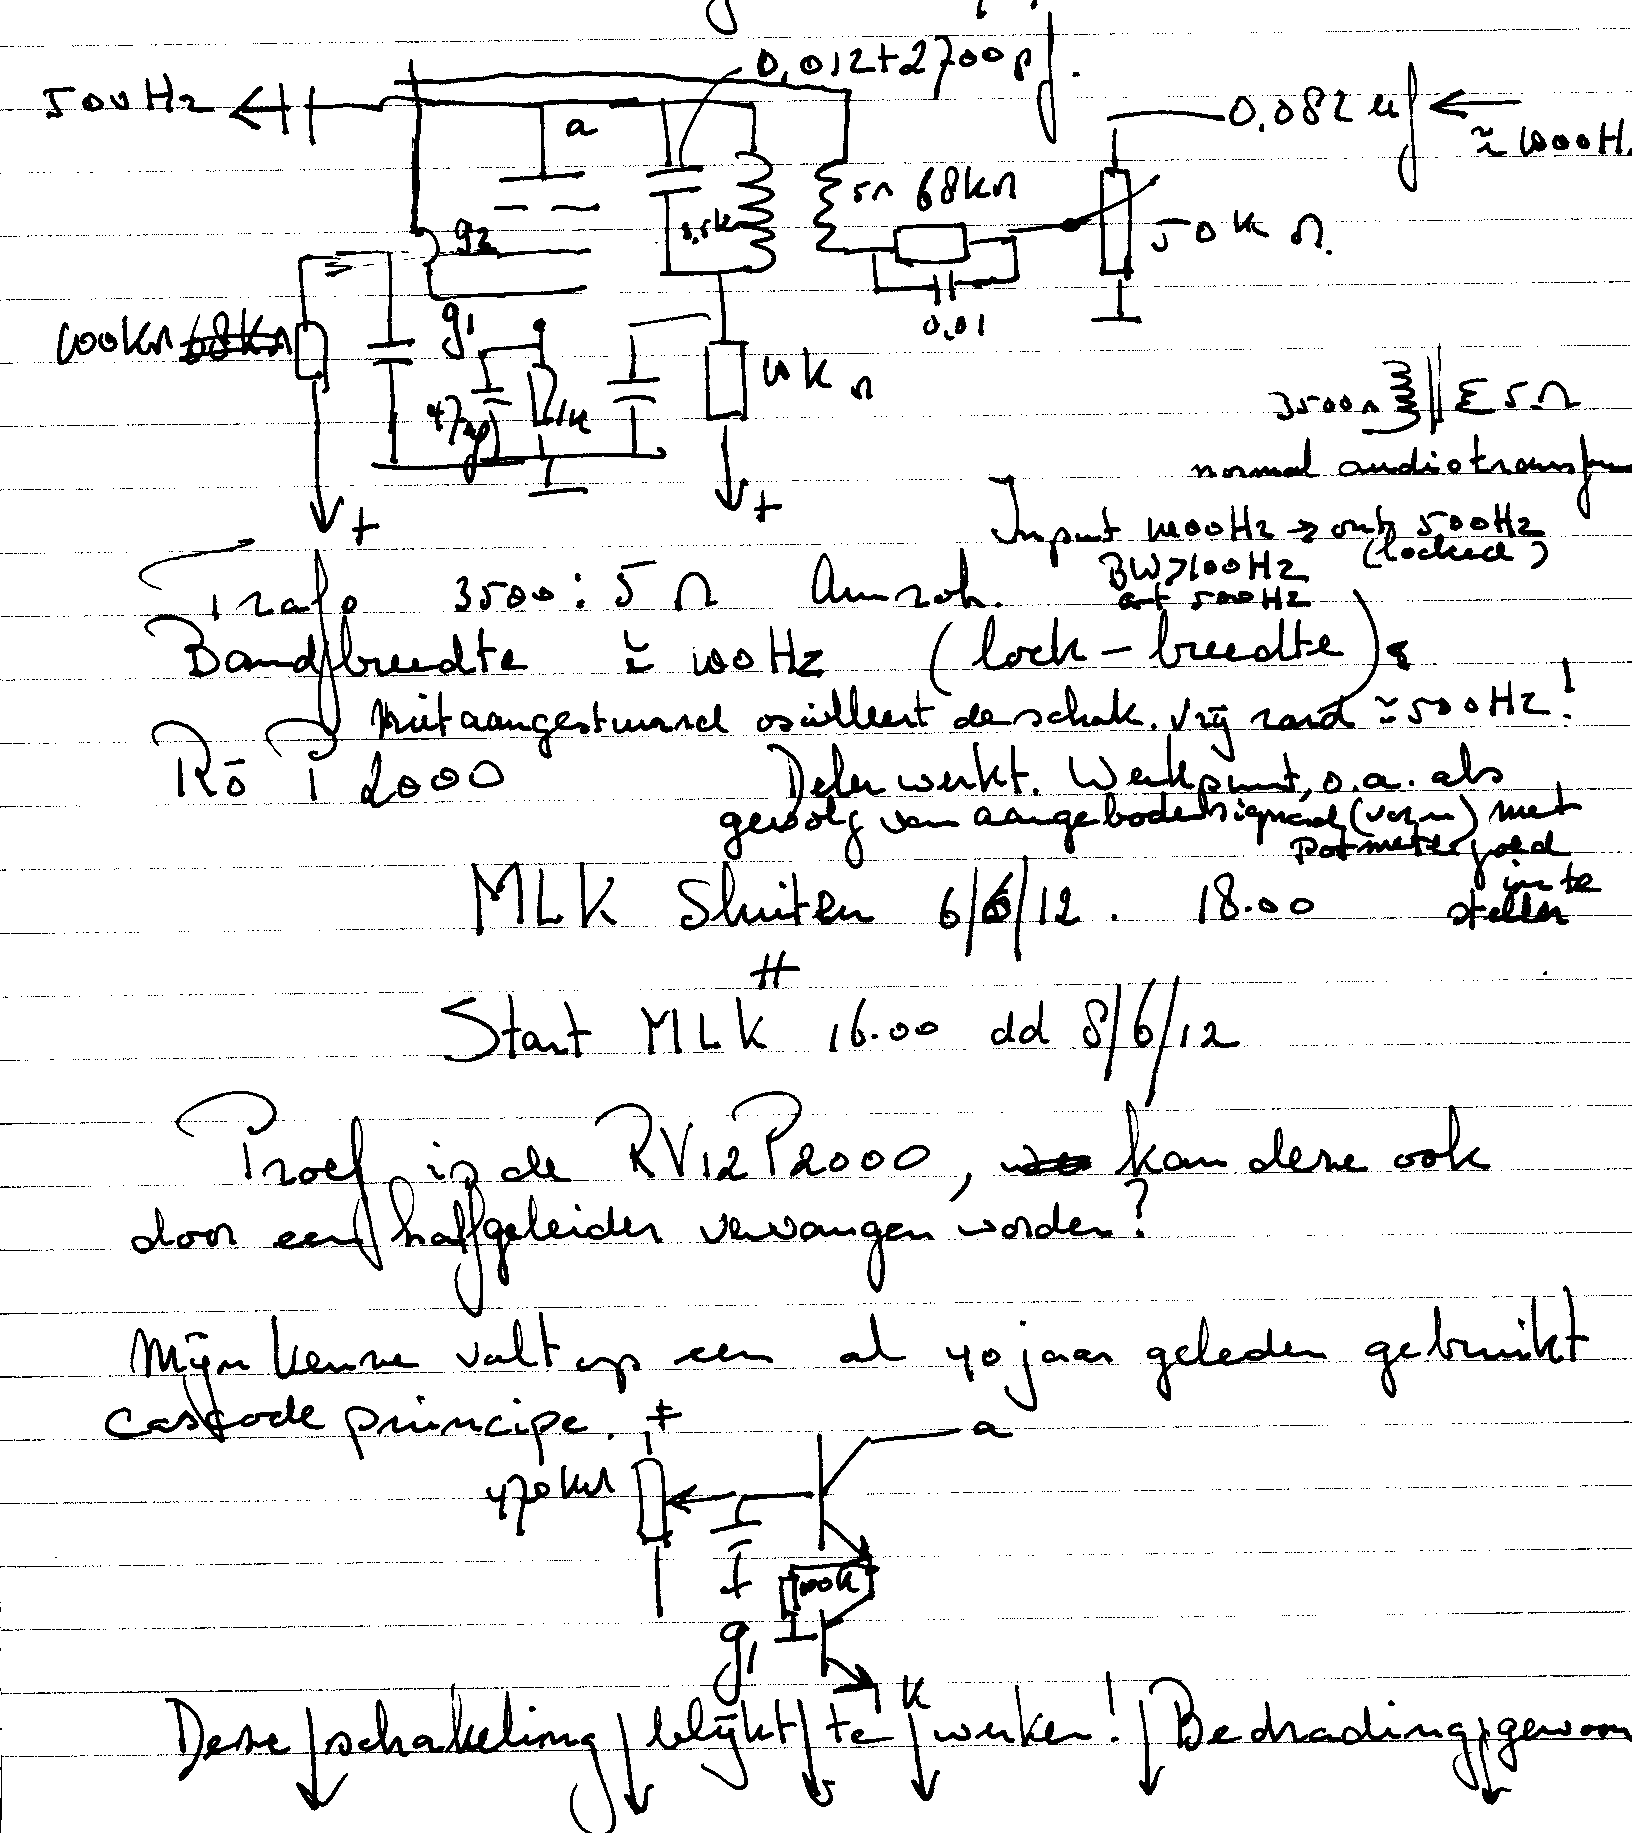 0,012+2700pf.
500Hz
a
0.082 uf
≈ 1000H
g2
1,5k
5Ω 68kΩ
50kΩ.
0,01
100kΩ 68kΩ
g1
47µf
1k
10kΩ
3500Ω 5Ω
normal audiotransfor
+ +
Input 1000Hz → out 500Hz
(locked)
BW>100Hz
at 500Hz
Trafo 3500:5Ω
Bandbreedte ≈ 100Hz (lock-breedte)
Niet aangestuurd oscilleert de schak. vrij rond ≈500Hz!
Rö P 2000 Deler werkt. Werkpunt, o.a. als
gevolg van aangeboden signaal (vorm) met
Potmeter goed
in te
stellen
MLK Sluiten 6/6/12. 18.00
#
Start MLK 16.00 dd 8/6/12
Proef is de RV12P2000, kan deze ook
door een halfgeleider vervangen worden?
Mijn keuze valt op een al 40 jaar geleden gebruikt
cascode principe. +
a
470kΩ
100k
g1
K
Deze schakeling blijkt te werken! Bedrading gewoon